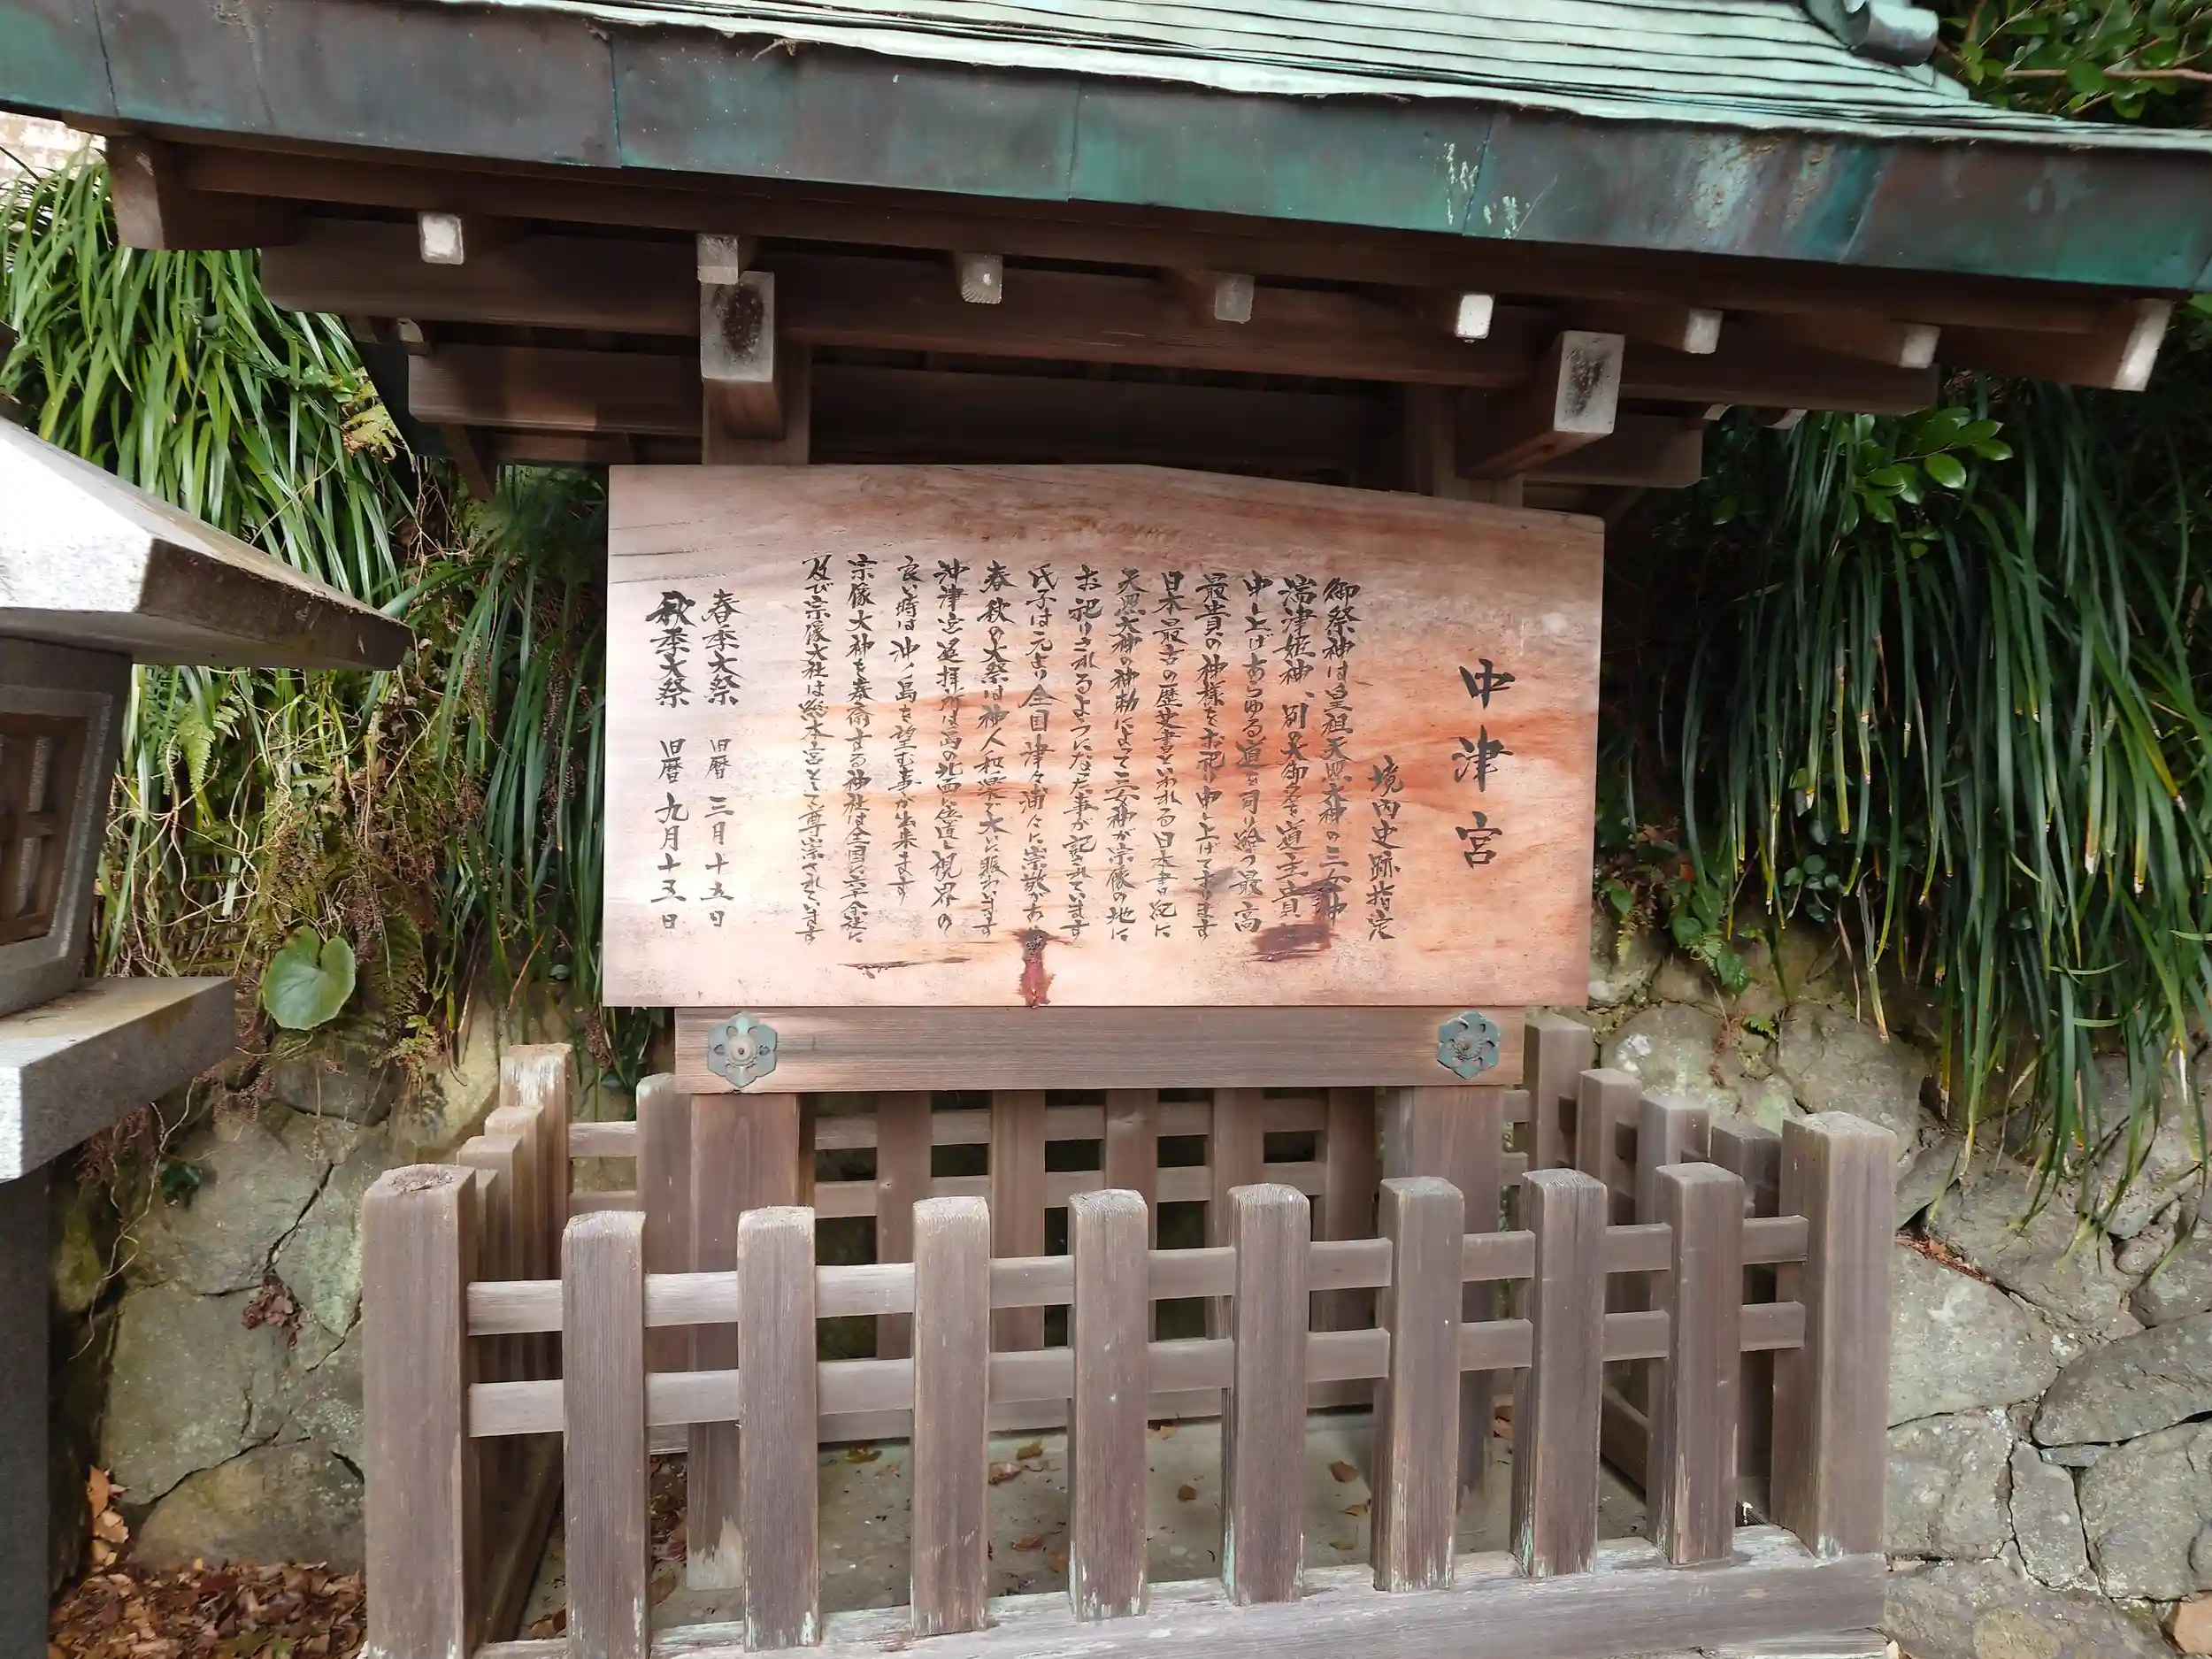 中津宮
境内史跡指定
御祭神は皇祖天照大神の三女神
湍津姫神、別の大御名を道主貴と
申し上げあらゆる道を司り給う最高
最貴の神様をお祀り申し上げております
日本最古の歴史書といわれる日本書紀に
天照大神の神勅によって三女神が宗像の地に
お祀りされるようになった事が記されています
氏子は元より全国津々浦々に崇敬があり
春秋の大祭は神人和楽で大いに賑わいます
沖津宮遥拝所は島の北西に位置し視界の
良い時は沖ノ島を望む事が出来ます
宗像大神を奉斎する神社は全国六千余社に
及び宗像大社は総本宮として尊崇されています
春季大祭 旧暦 三月十五日
秋季大祭 旧暦 九月十五日